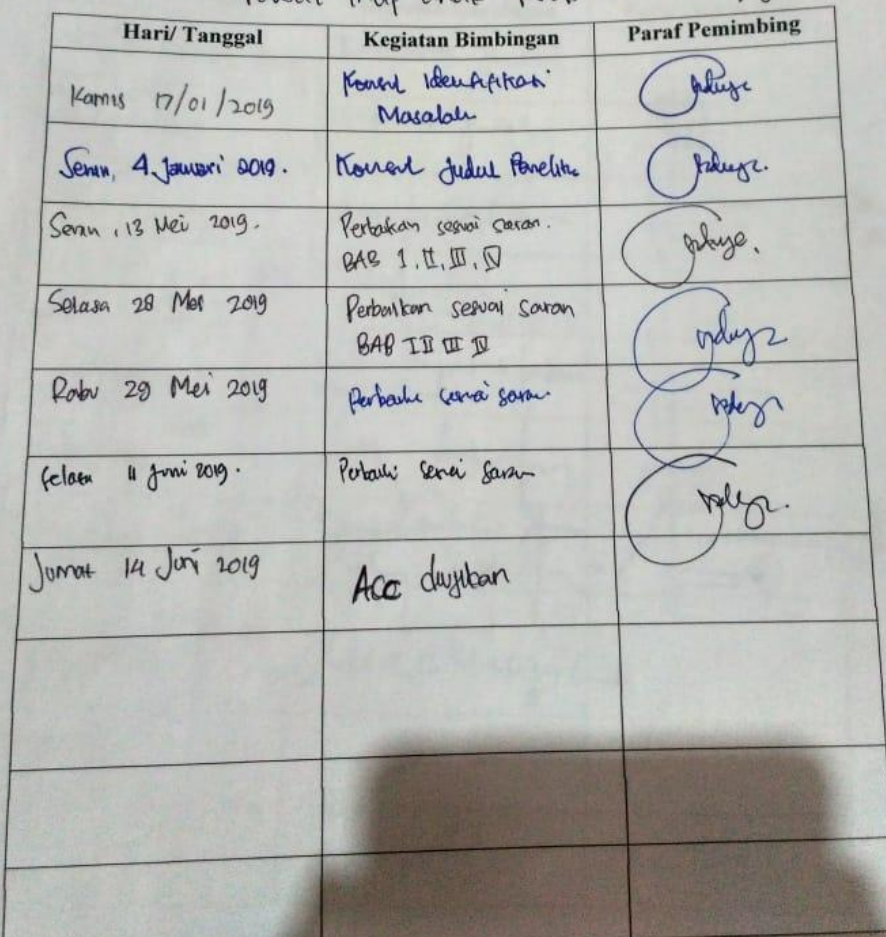 Hari/ Tanggal Kegiatan Bimbingan Paraf Pemimbing
Kamis 17/01/2019 Konsul Identifikasi
Masalah
Senin, 4 Januari 2019. Konsul Judul Penelitin
Senin, 13 Mei 2019. Perbaikan sesuai saran.
BAB I, II, III, IV
Selasa 28 Mei 2019 Perbaikan sesuai saran
BAB I II III IV
Rabu 29 Mei 2019 Perbaiki sesuai saran
Selasa 11 Juni 2019. Perbaiki sesuai saran
Jumat 14 Juni 2019 ACC diujikan